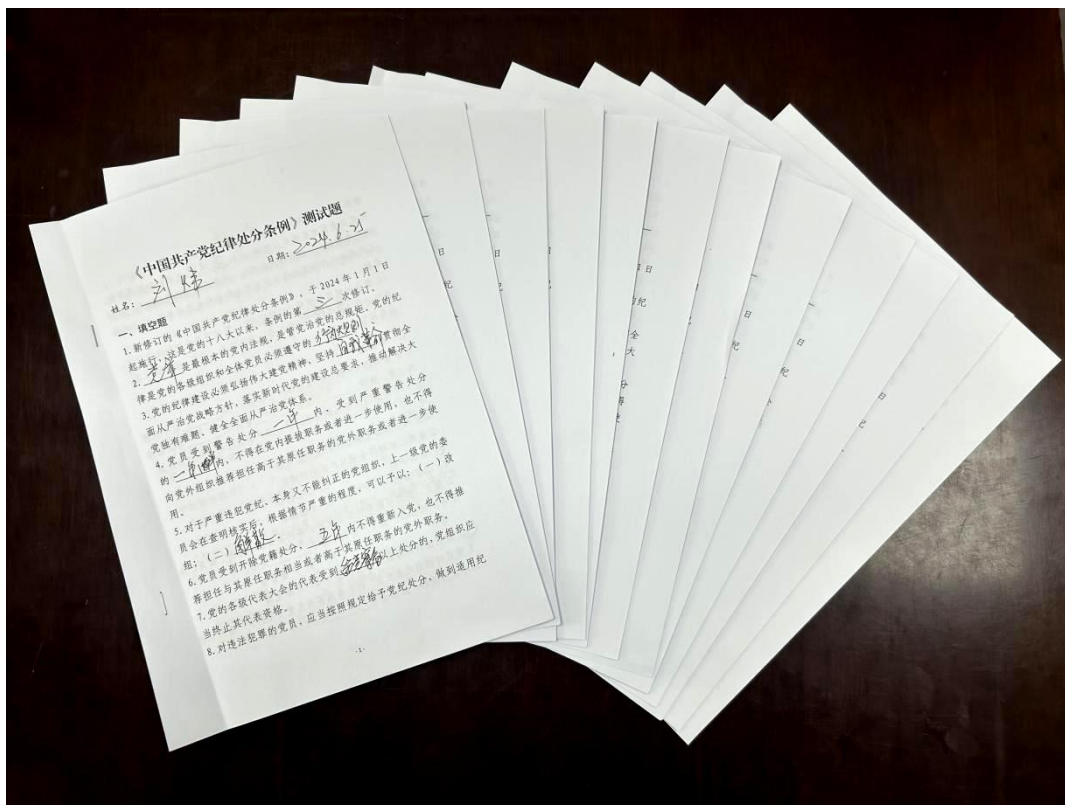 《中国共产党纪律处分条例》测试题
姓名：刘炜 日期：2024.6.25
一、填空题
1.新修订的《中国共产党纪律处分条例》，于2024年1月1日
起施行，这是党的十八大以来，条例的第三次修订。
2.党章是最根本的党内法规，是管党治党的总规矩。党的纪
律是党的各级组织和全体党员必须遵守的行为规则
3.党的纪律建设必须弘扬伟大建党精神，坚持自我革命贯彻全
面从严治党战略方针，落实新时代党的建设总要求，推动解决大
党独有难题、健全全面从严治党体系。
4.党员受到警告处分一年内、受到严重警告处分
的一年半内，不得在党内提拔职务或者进一步使用，也不得
向党外组织推荐担任高于其原任职务的党外职务或者进一步使
用。
5.对于严重违犯党纪、本身又不能纠正的党组织，上一级党的委
员会在查明核实后，根据情节严重的程度，可以予以：（一）改
组；（二）解散。
6.党员受到开除党籍处分，五年内不得重新入党，也不得推
荐担任与其原任职务相当或者高于其原任职务的党外职务。
7.党的各级代表大会的代表受到留党察看以上处分的，党组织应
当终止其代表资格。
8.对违法犯罪的党员，应当按照规定给予党纪处分，做到适用纪
-1-